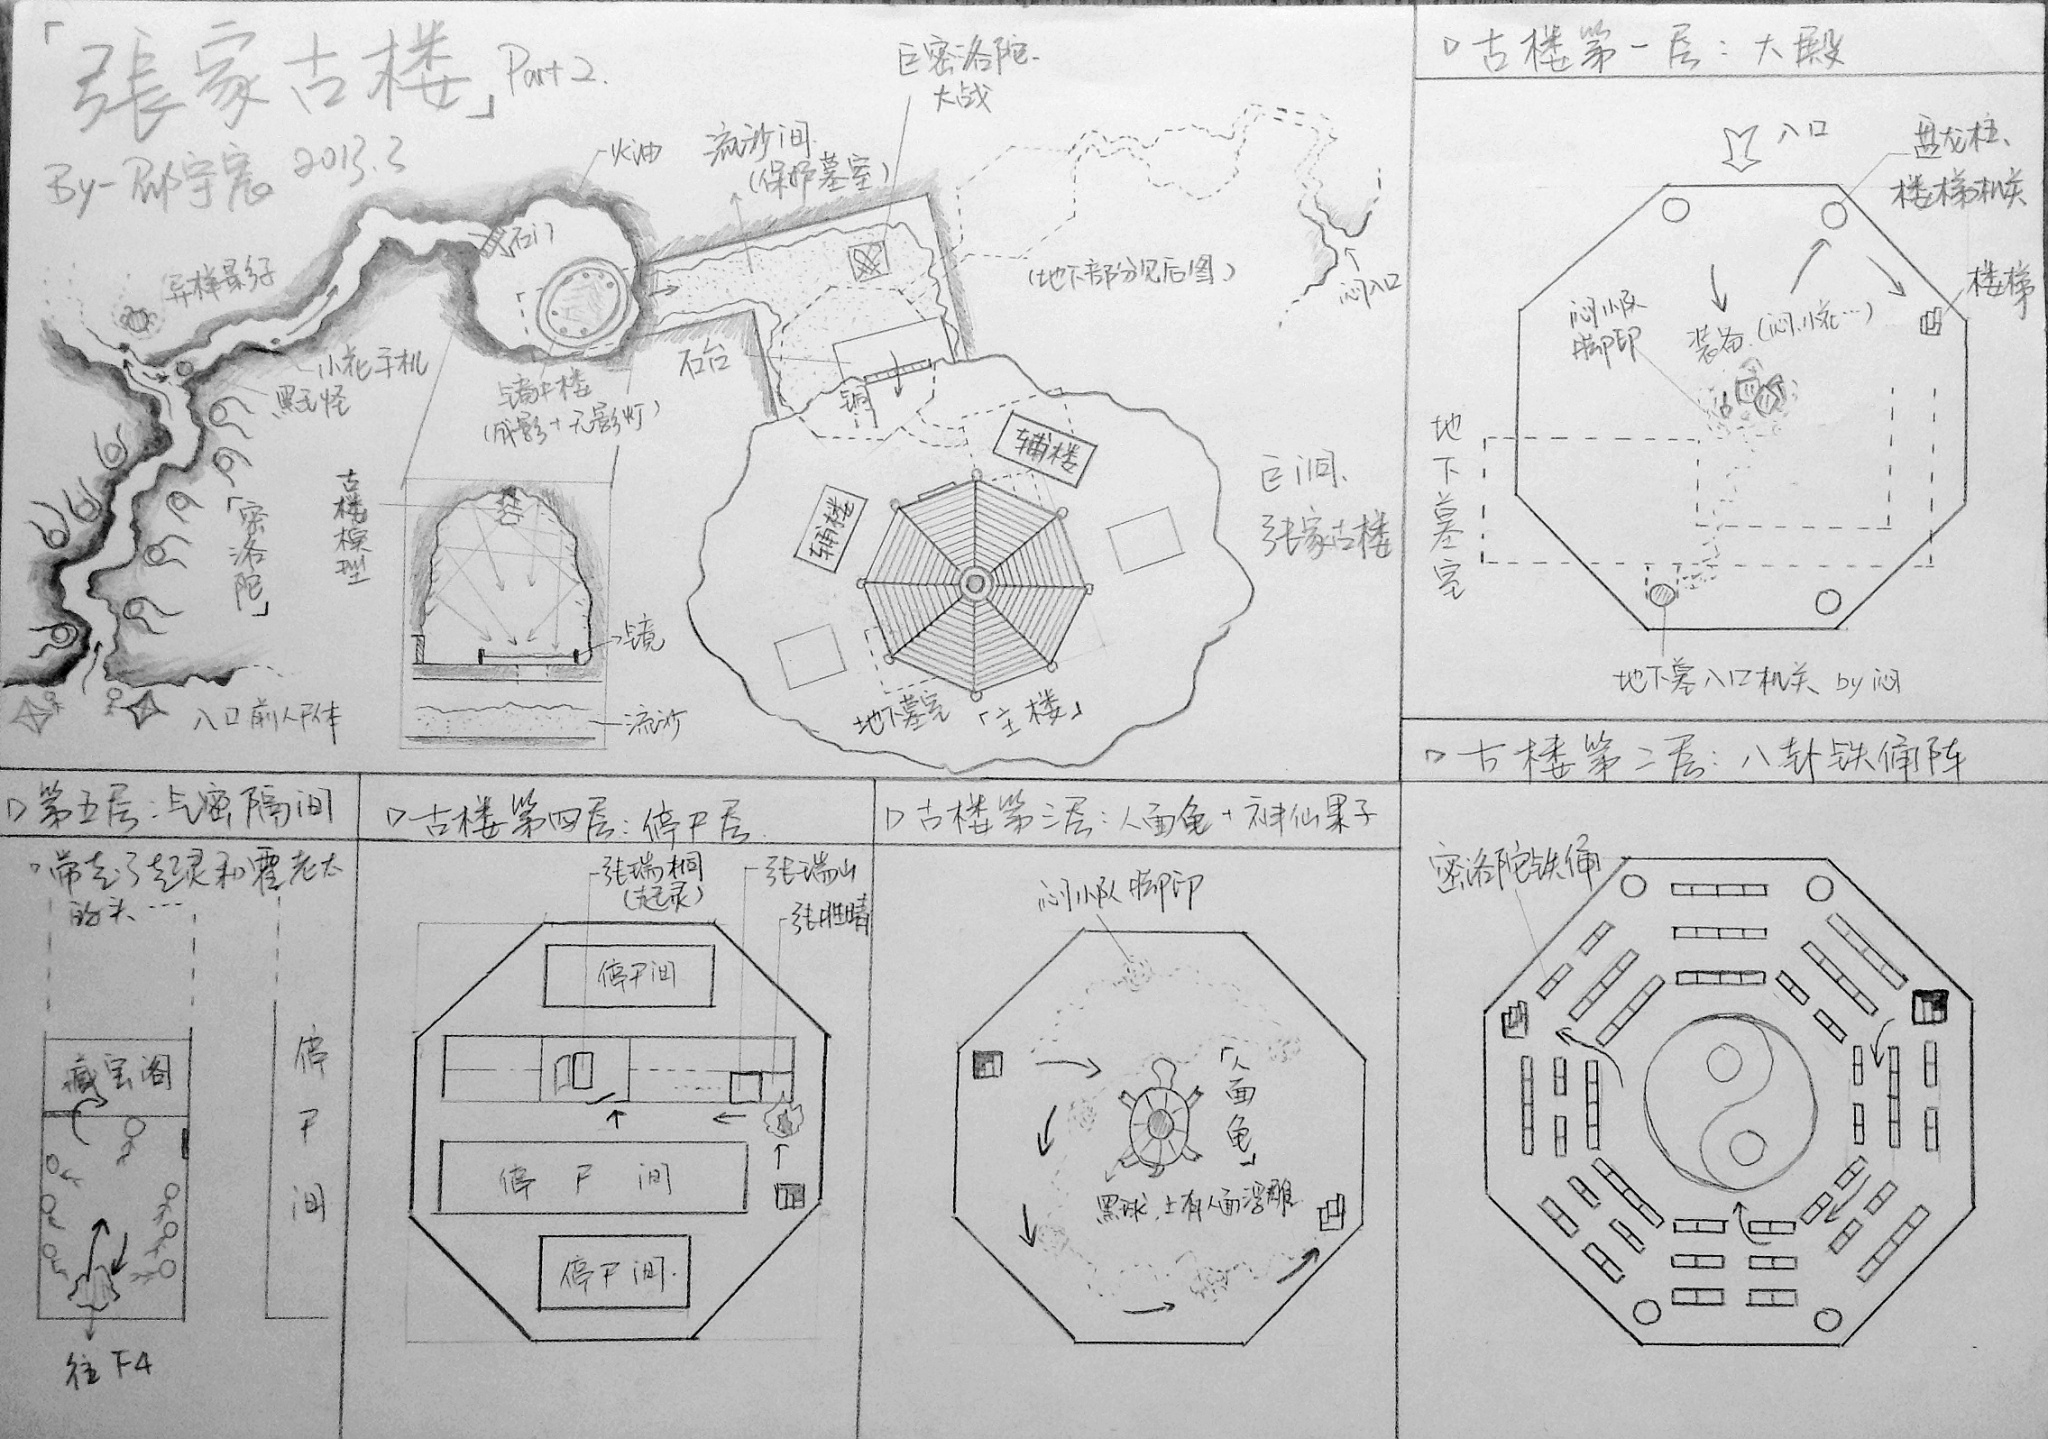 「張家古楼」Part 2.
By-邸宇宸 2013.3
火油
流沙间
(保护墓室)
巨密洛陀
大战
石门
异样景纹
小花手机
黑毛怪
「密洛陀」
入口前人尸体
镜中楼
(成影+无影灯)
古楼模型
气镜
流沙
石台
铜
(地下部分见后图)
闷入口
辅楼
辅楼
巨洞、
张家古楼
地下墓室
「主楼」
▷古楼第一层:大殿
入口
盘龙柱、
楼梯机关
楼梯
闷小队
脚印
装备(闷、小花…)
地下墓室
地下墓入口机关 by闷
▷古楼第二层:八卦铁俑阵
密洛陀铁俑
▷古楼第三层:人面龟+神仙果子
闷小队脚印
「人面龟」
黑球,上有人面浮雕
▷古楼第四层:停尸层
张瑞桐
(起灵)
张瑞山
张胜晴
停尸间
停尸间
停尸间
▷第五层:气密隔间
带走了起灵和霍老太
的头……
藏宝阁
停尸间
往下4